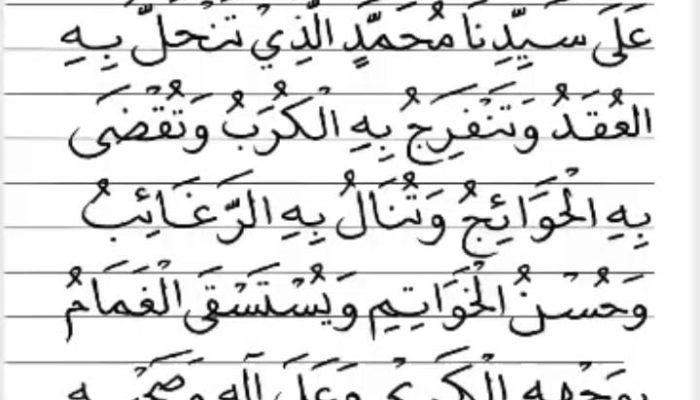 عَلَى سَيِّدِنَا مُحَمَّدٍ الَّذِيْ تَنْحَلُّ بِهِ
العُقَدُ وَتَنْفَرِجُ بِهِ الْكُرَبُ وَتُقْضَى
بِهِ الْحَوَائِجُ وَتُنَالُ بِهِ الرَّغَائِبُ
وَحُسْنُ الْخَوَاتِمِ وَيُسْتَسْقَى الْغَمَامُ
بِوَجْهِهِ الْكَرِيْمِ وَعَلَى آلِهِ وَصَحْبِهِ